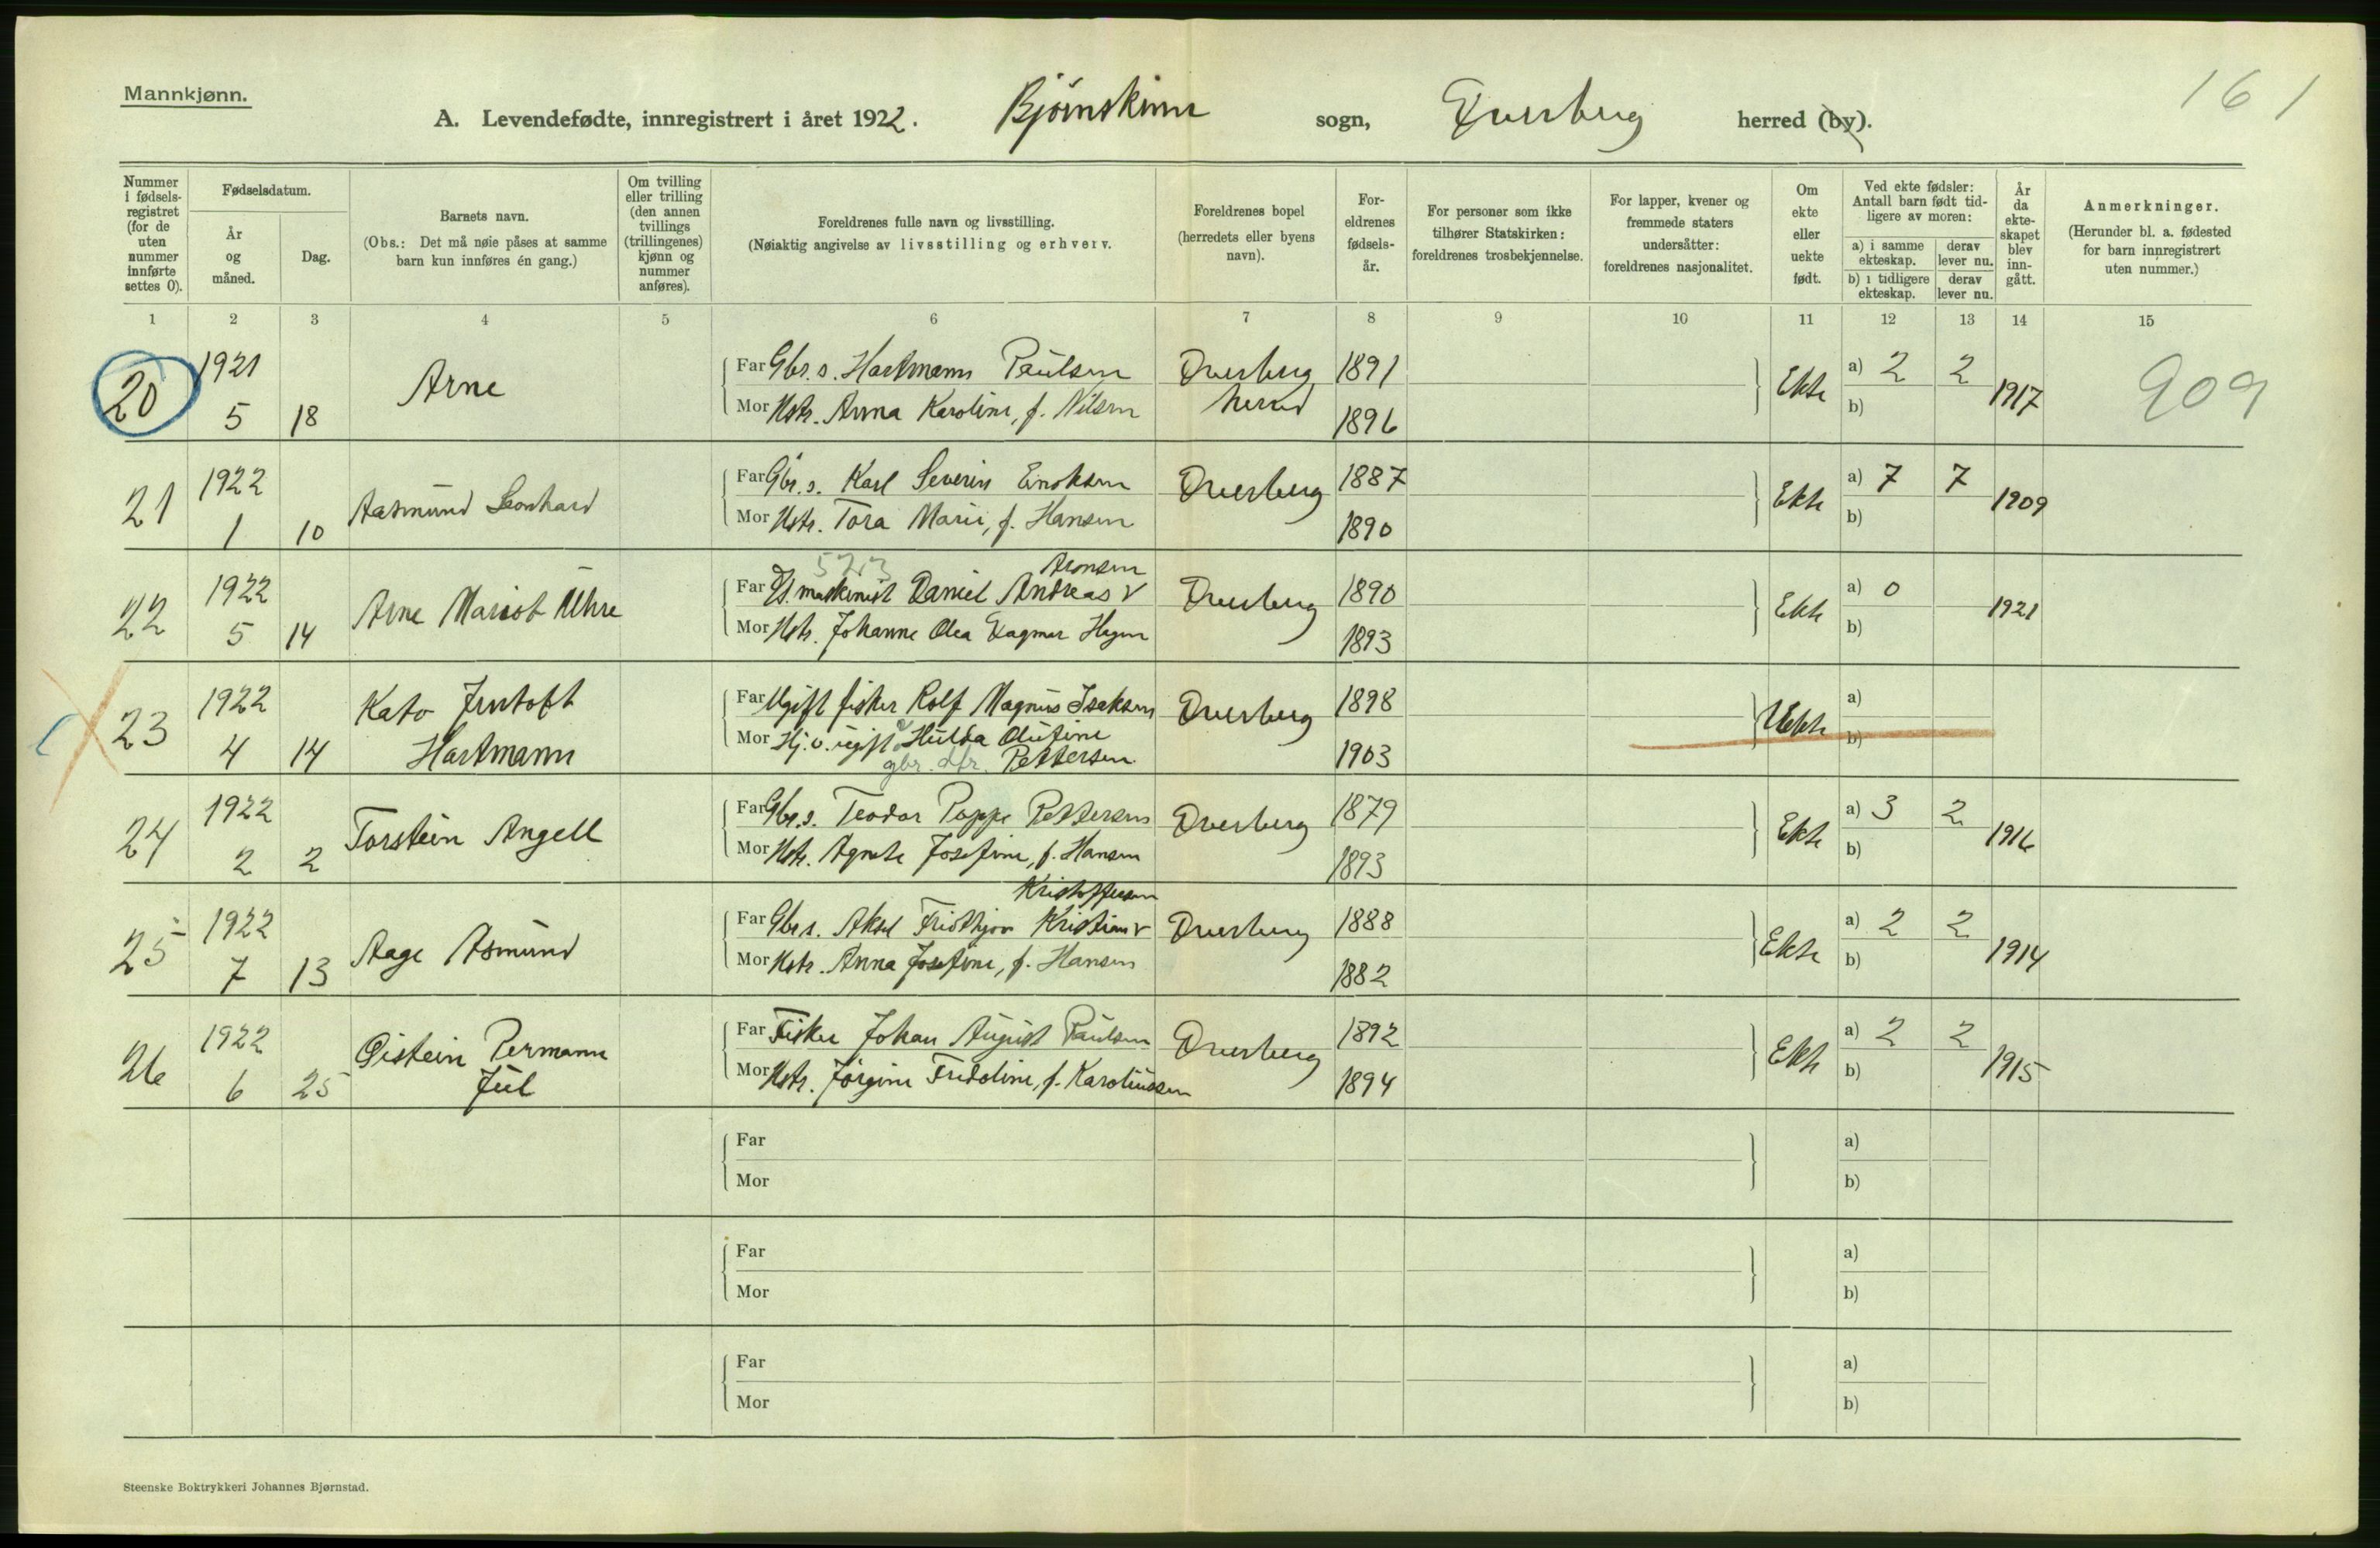 Mannkjønn.
161
A. Levendefødte, innregistrert i året 1922. Bjørnskinn sogn, Dverberg herred (by).
Nummer i fødsels-registret (for de uten nummer innførte settes 0).
Fødselsdatum.
År og måned.
Dag.
Barnets navn.
(Obs.: Det må nøie påses at samme barn kun innføres én gang.)
Om tvilling eller trilling (den annen tvillings (trillingenes) kjønn og nummer anføres).
Foreldrenes fulle navn og livsstilling.
(Nøiaktig angivelse av livsstilling og erhverv.
Foreldrenes bopel (herredets eller byens navn).
For-eldrenes fødsels-år.
For personer som ikke tilhører Statskirken: foreldrenes trosbekjennelse.
For lapper, kvener og fremmede staters undersåtter: foreldrenes nasjonalitet.
Om ekte eller uekte født.
Ved ekte fødsler: Antall barn født tid-ligere av moren:
a) i samme ekteskap.
derav lever nu.
b) i tidligere ekteskap.
derav lever nu.
År da ekte-skapet blev inn-gått.
Anmerkninger.
(Herunder bl. a. fødested for barn innregistrert uten nummer.)
1 2 3 4 5 6 7 8 9 10 11 12 13 14 15
20 1921 5 18 Arne
Far Gbr.s. Hartmann Paulsen Dverberg herred 1891
Mor Hstr. Anna Karoline, f. Nilsen 1896
Ekte a) 2 2 b) 1917 909
21 1922 1 10 Aasmund Leonhard
Far Gbr.s. Karl Severin Enoksen Dverberg 1887
Mor Hstr. Tora Marie, f. Hansen 1890
Ekte a) 7 7 b) 1909
22 1922 5 14 Arne Uhre
523 Aronsen
Far maskinist Daniel Andreas V Dverberg 1890
Mor Hstr. Johanne Olea Dagmar Hagen 1893
Ekte a) 0 b) 1921
23 1922 4 14 Kato Hartmann
Far Ugift fisker Rolf Magnus Isaksen Dverberg 1898
Mor Hj.v. ugift Hulda Olufine
gbr. dtr. Pettersen 1903
Uekte a) b)
24 1922 2 2 Torstein Angell
Far Gbr.s. Teodor Poppe Pettersen Dverberg 1879
Mor Hstr. Agnete Josefine, f. Hansen 1893
Ekte a) 3 2 b) 1916
25 1922 7 13 Aage Asmund
Kristoffersen
Far Gbr.s. Aksel Fridthjov Kristian V Dverberg 1888
Mor Hstr. Anna Josefine, f. Hansen 1882
Ekte a) 2 2 b) 1914
26 1922 6 25 Øistein Permann Juul
Far Fisker Johan August Paulsen Dverberg 1892
Mor Hstr. Jørgine Fredoline, f. Karoliussen 1894
Ekte a) 2 2 b) 1915
Far a)
Mor b)
Far a)
Mor b)
Far a)
Mor b)
Steenske Boktrykkeri Johannes Bjørnstad.